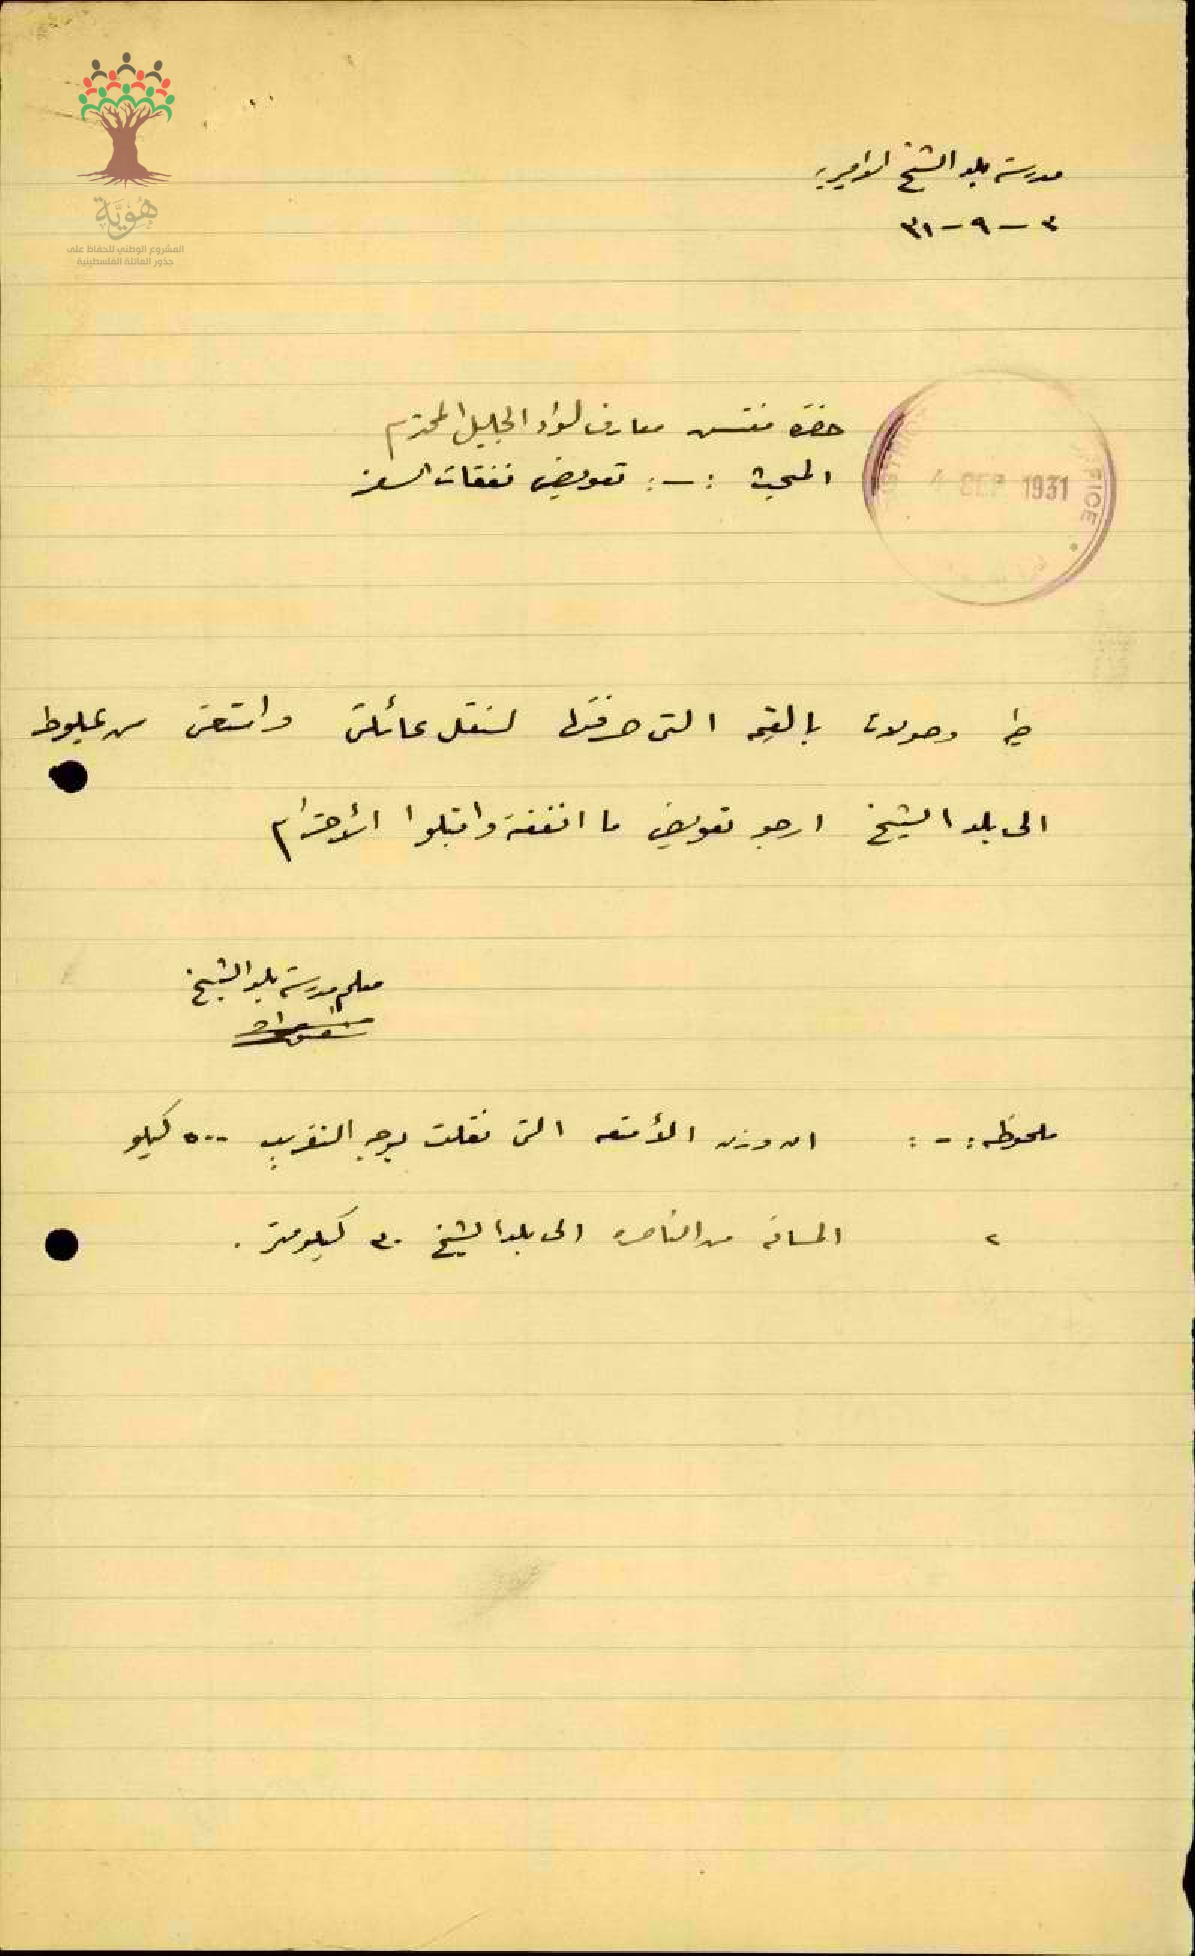 هُوِيَّة
المشروع الوطني للحفاظ على
جذور العائلة الفلسطينية
مدرسة بلد الشيخ الاميرية
٣ - ٩ - ٣١
حضرة مفتش معارف لواء الجليل المحترم
المبحث :-: تعويض نفقات السفر
OFFICE
4 SEP 1931
طيه وصولات بالقيمة التي صرفتها لنقل عائلتي وامتعتي من عيلوط
الى بلد الشيخ ارجو تعويض ما انفقته واقبلوا الاحترام
معلم مدرسة بلد الشيخ
ملحوظه :-: ان وزن الأمتعه التي نقلت بوجه التقريب ٥٠٠ كيلو
٢ المسافه من الناصره الى بلد الشيخ ٣٠ كيلومتر .